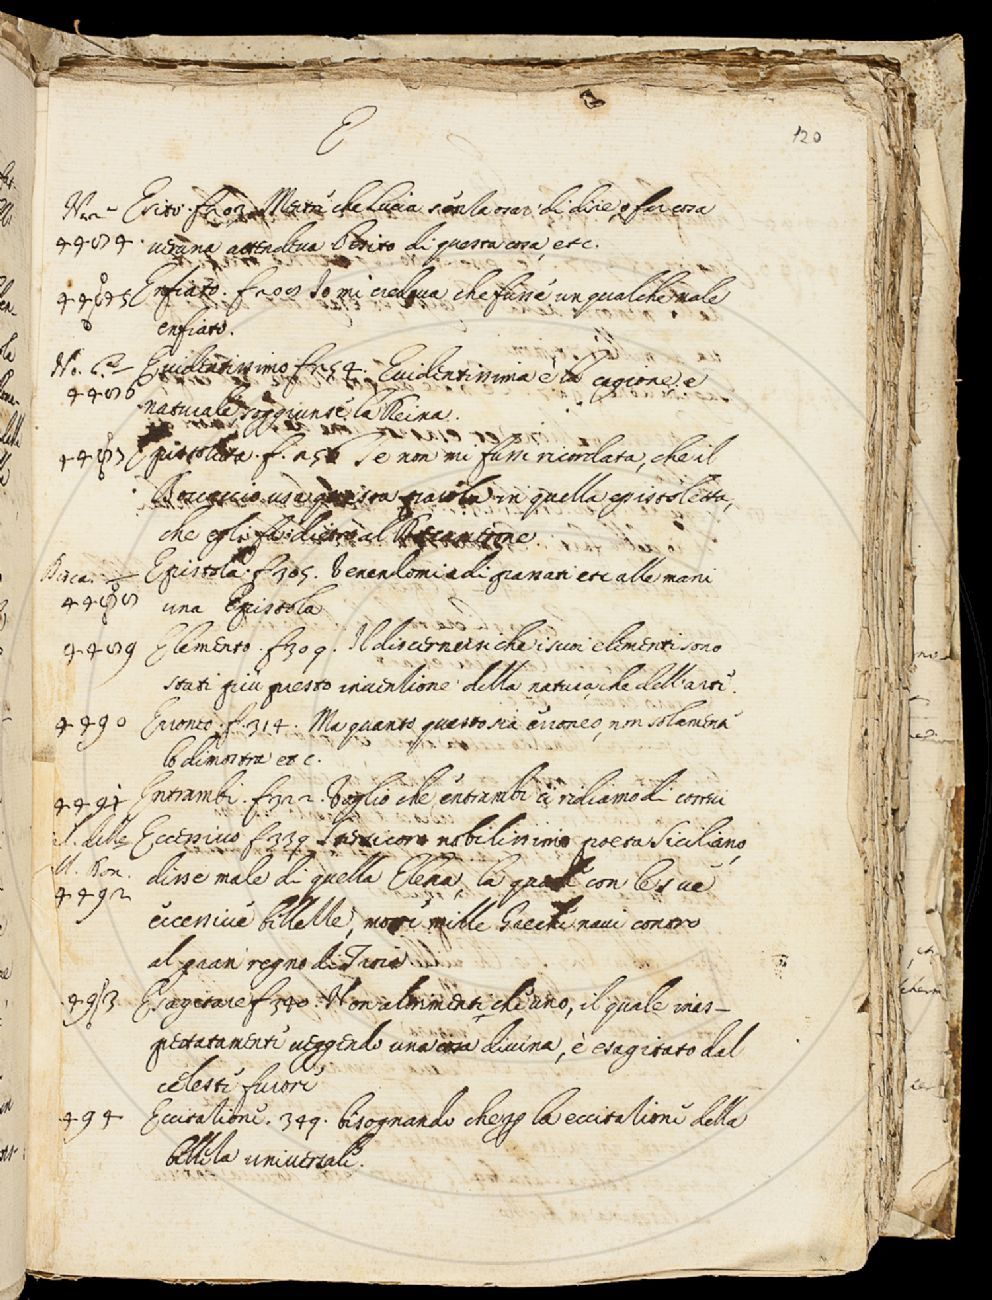 E
120
Esito. f. 203. Mentre che Lucia senza osar di dire o far cosa
4484. veruna attendeva l'esito di questa cosa, etc.
4485 Enfiato. f. 208 Io mi credeva che fusse un qualche male
enfiato.
Evidentissimo f. 254. Evidentissima è la cagione, e
4486
naturale soggiunse la Reina.
4487 Epistoletta. f. 256 Se non mi fussi ricordata, che il
Boccaccio usa questa parola in quella epistoletta,
che egli fa dietro al Decamerone
Epistola. f. 305. Venendomi a di passati etc alle mani
4488 una Epistola
4489 Elemento. f. 309. Il discernere che i suoi elementi sono
stati più presto invenzione della natura che dell'arte.
4490 Erroneo. f. 314. Ma quanto questo sia erroneo, non solamente
lo dimostra etc.
4491 Entrambi. f. 322. Voglio che entrambi ci ridiamo di costui
Eccessivo f. 339 Stesicoro nobilissimo poeta Siciliano,
disse male di quella Elena, la quale con le sue
4492
eccessive bellezze, mosse mille Greche navi contro
al gran regno di Troia.
493 Esagitare f. 340. Non altrimenti che uno, il quale inas-
pettatamente veggendo una cosa divina, è esagitato dal
celesti furori
494 Eccitazione. 349. bisognando che per la eccitazione della
bellezza universale.